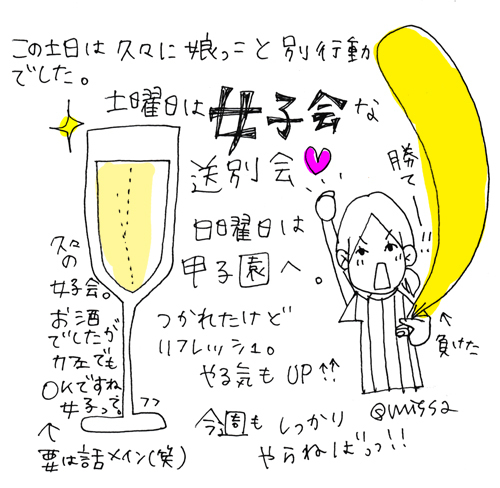 この土日は久々に娘っこと別行動
でした。
土曜日は女子会な
送別会
日曜日は
甲子園へ。
つかれたけど
リフレッシュ。
やる気もUP↑↑
今週も しっかり
やらねばっっ!!
久々
の
女子会。
お酒
でしたが
カフェでも
OKですね
女子って。
↑
要は話メイン(笑)
勝てー!!
↑
負けた
@missa